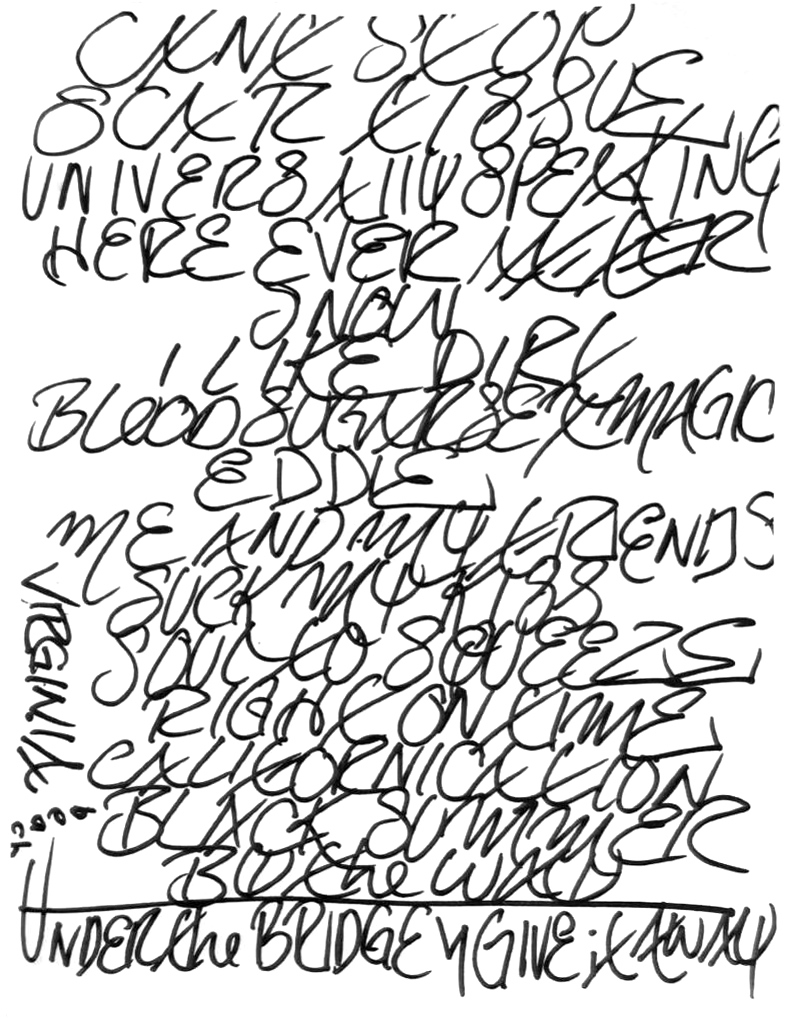 CAN'T STOP
SCAR TISSUE
UNIVERSALLY SPEAKING
HERE EVER AFTER
SNOW
I LIKE DIRT
BLOOD SUGAR SEX MAGIC
EDDIE
ME AND MY FRIENDS
SUCK MY KISS
SOUL TO SQUEEZE
RIGHT ON TIME
CALIFORNICATION
BLACK SUMMER
BY the WAY
UNDER the BRIDGE y GIVE it AWAY
VIRGINIA
beach